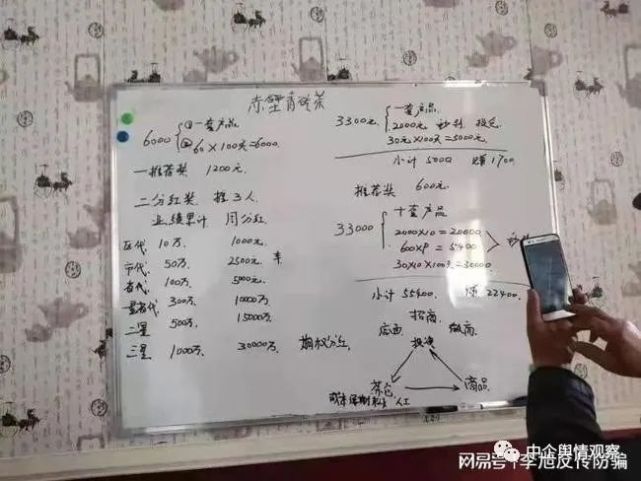 赤壁青砖茶
6000 ①一套产品
②60×100天=6000
一推荐奖 1200元
二分红奖 推3人
业绩累计 月分红
区代 10万 1000元
市代 50万 2500元 车
省代 100万 5000元
300万 10000万
二星 500万 15000万
三星 1000万 30000万 期权分红
3300元 一套产品
2000元 秒到
30元×100天=3000元
小计 5000 赚1700
推荐奖 600元
33000 十套产品
2000×10=20000
600×9=5400
30×10×100天=30000
小计 55400 赚22400
招商
店面 做商
投资
茶仓 商品
人工
中企舆情观察
网易号 | 李旭反传防骗